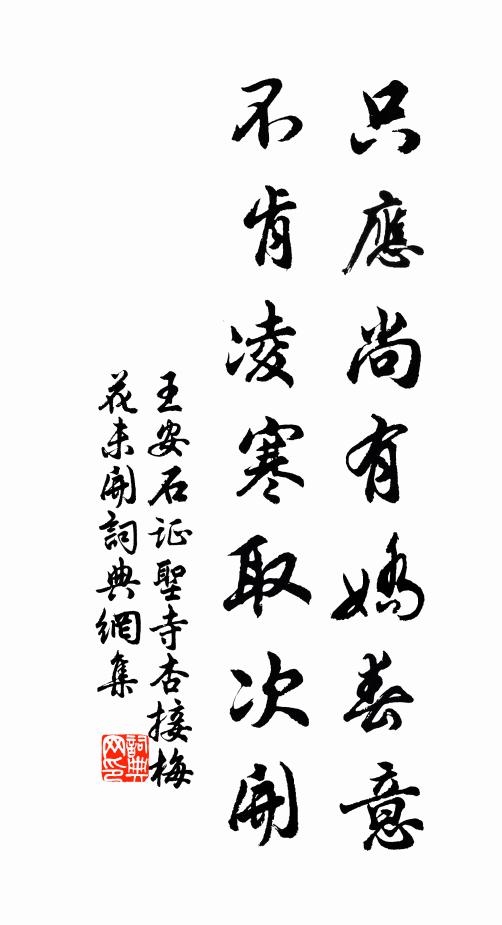 只應尚有嬌春意
不肯凌寒取次開
王安石证聖寺杏接梅
花未開詞典網集
詞典
网印